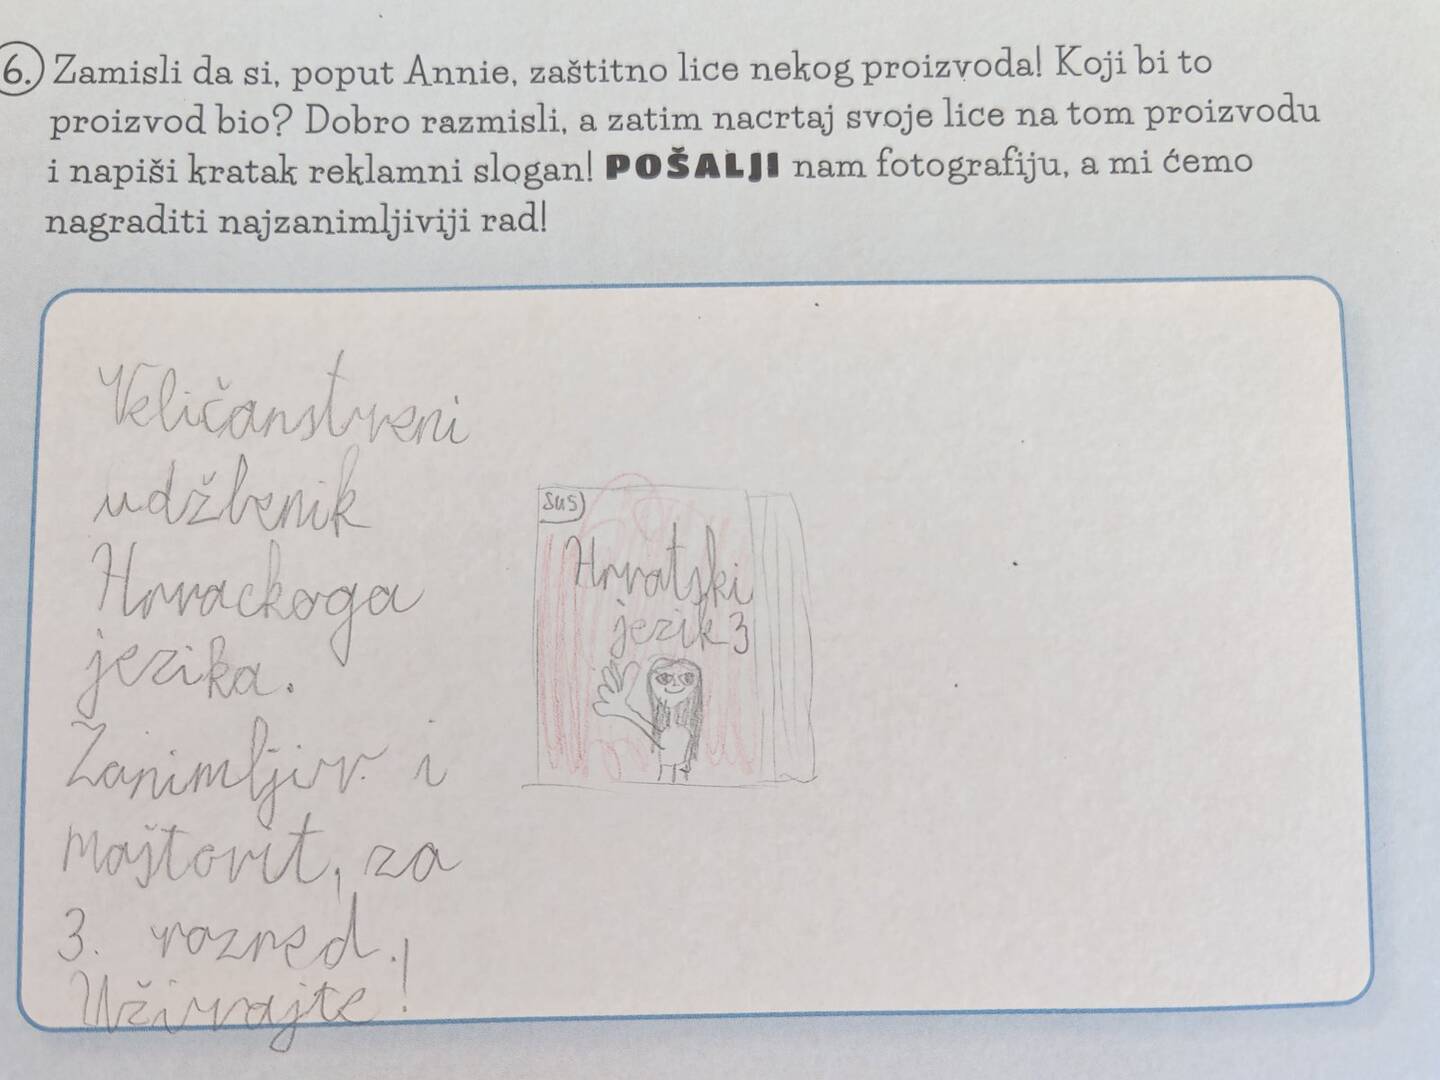 6. Zamisli da si, poput Annie, zaštitno lice nekog proizvoda! Koji bi to
proizvod bio? Dobro razmisli, a zatim nacrtaj svoje lice na tom proizvodu
i napiši kratak reklamni slogan! POŠALJI nam fotografiju, a mi ćemo
nagraditi najzanimljiviji rad!
Veličanstveni
udžbenik
Hrvackoga
jezika.
Zanimljiv i
maštovit, za
3. razred.
Uživajte!
sus
Hrvatski
jezik 3